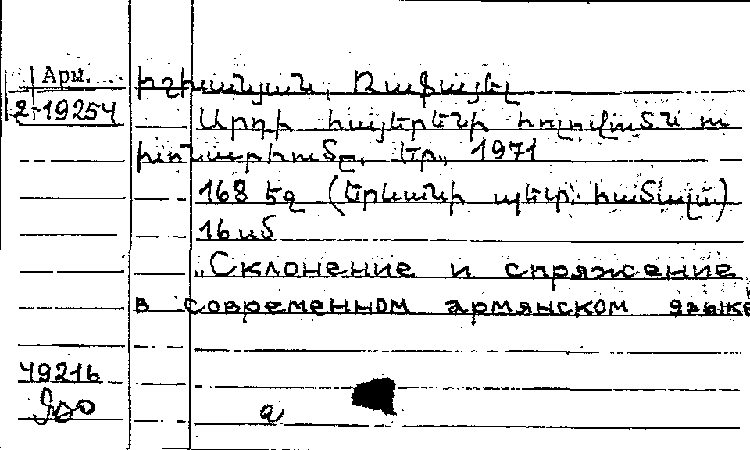 Арм.
2-19254
Իշխանյան, Ռաֆայել
Արդի հայերենի հոլովումն ու
խոնարհումը. Եր., 1971
168 էջ (Երևանի պետ. համալս)
16 սմ
„Склонение и спряжение
в современном армянском языке
49216
а